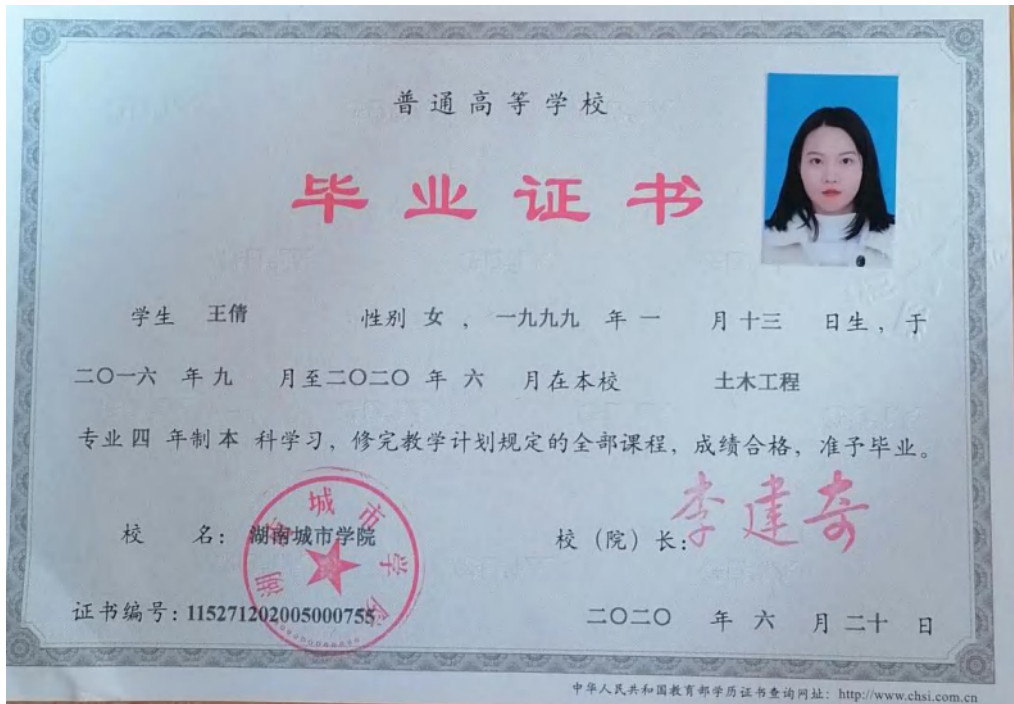 普通高等学校
毕业证书
学生 王倩 性别 女 ，一九九九 年 一 月 十三 日生，于
二〇一六 年 九 月至二〇二〇 年 六 月在本校 土木工程
专业 四 年制 本 科学习，修完教学计划规定的全部课程，成绩合格，准予毕业。
湖南城市学院
李建奇
校 名：湖南城市学院 校（院）长：
证书编号：115271202005000755 二〇二〇 年 六 月 二十 日
中华人民共和国教育部学历证书查询网址：http://www.chsi.com.cn